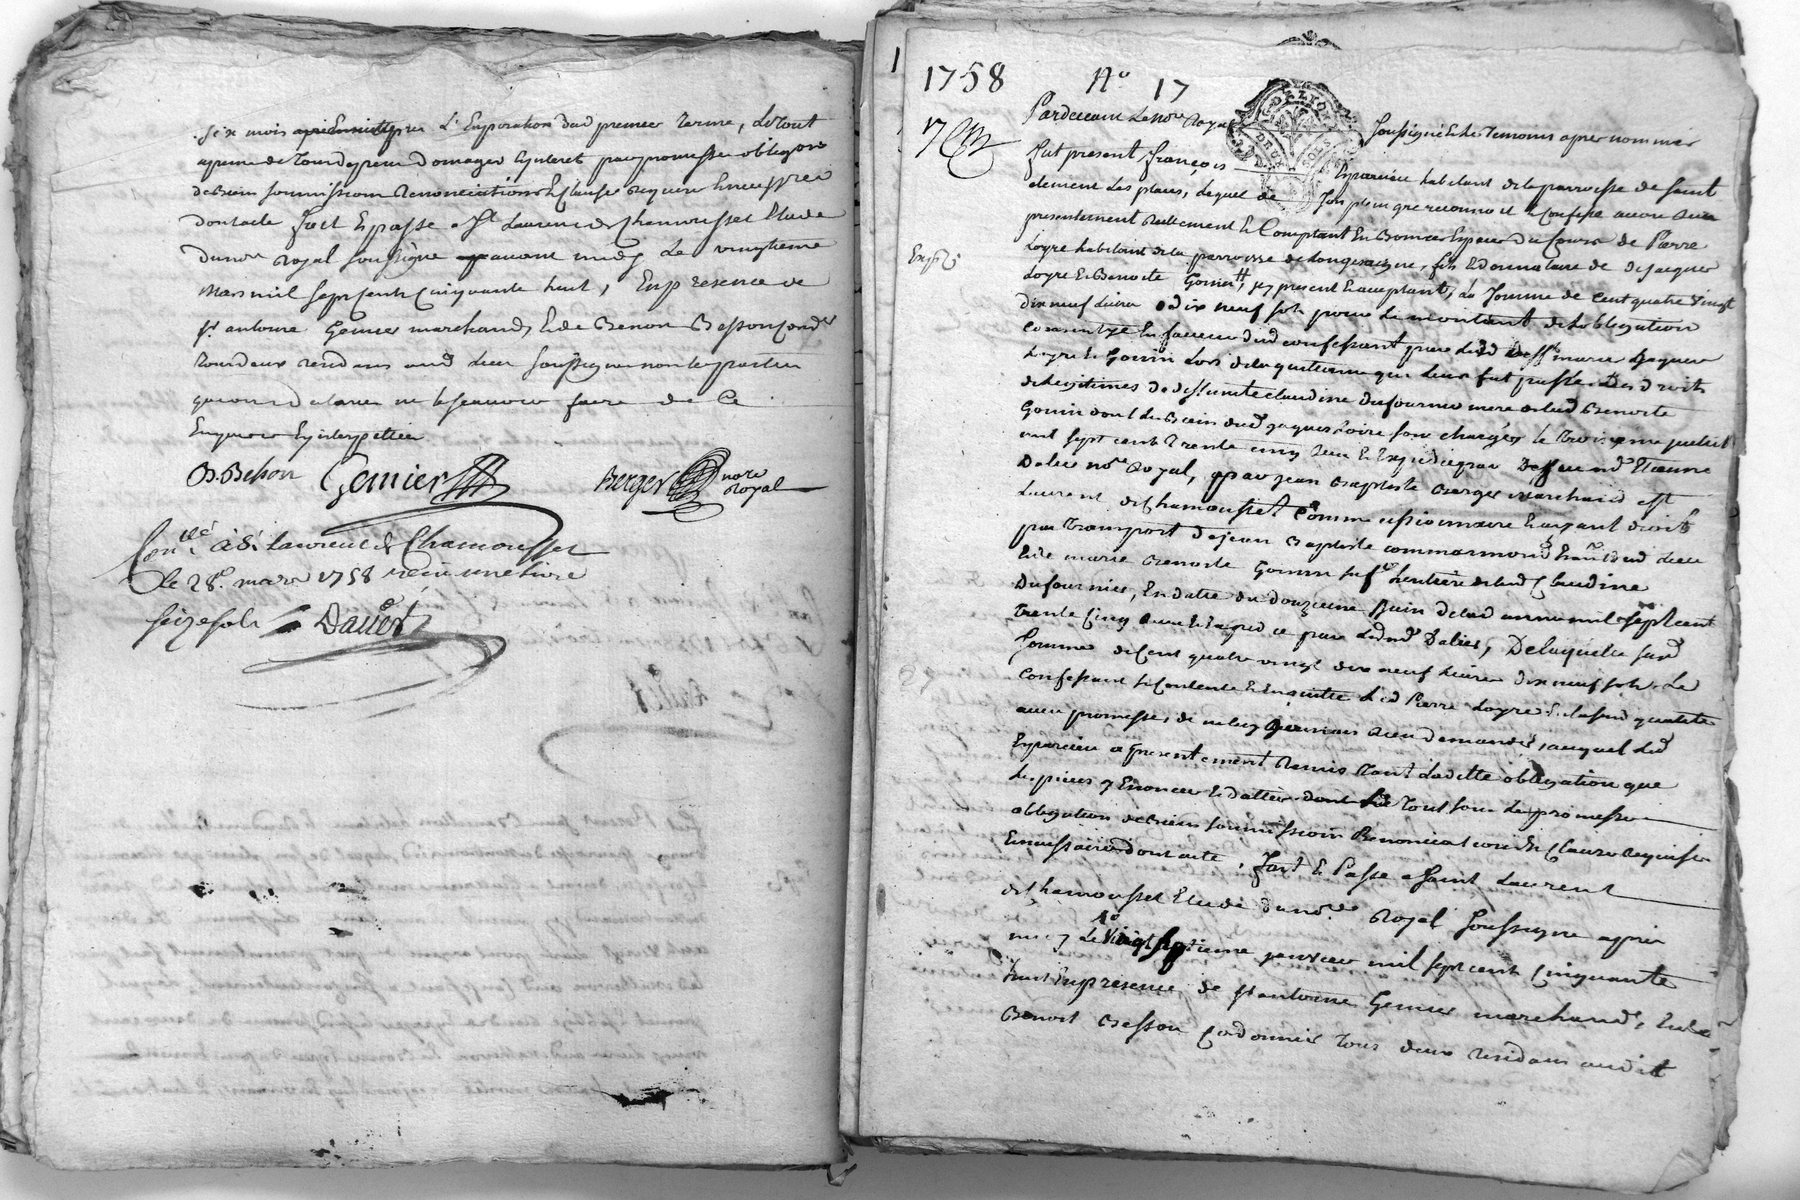 six mois après L'Expiration dud premier terme, Le tout
a peine de tous depens domages Interet par promesses obligaon
de biens soumissions Renonciations & Clauses requises & necessres
dont acte fait & passé a St Laurend de Chamousset Etude
du nore Royal soussigné avant midy Le vingtieme
Mars mil sept cents Cinquante huit, En presence de
sr antoine Genier marchand, & de Benoit Besson Cordr
tous deux residans aud lieu soussignés non les parties
qui ont declaré ne le scavoir faire de Ce
Enquises & interpellées
B. Besson Genier Berger nore Royal
Conllé à St Laurent de Chamousset
le 28e. mars 1758 reçu une livre
seize sols Dauet
1758 No 17
Pardevant Le nore Royal soussigné & les Temoins apres nommés
fut present françois Eyparcieu habitant de la parroisse de saint
clement Les places, Lequel de son plein gré reconnoit & Confesse avoir Reçu
presentement Reellement & Comptant En Bonnes Especes du Cours de Pierre
Loyre habitant de la parroisse de Longessaigne, fils & donnataire de Jacques
Loyre & Benoite Gonin, icy present & acceptant, La somme de Cent quatre vingt
dix neuf Livres dix neuf sols pour Le montant de L'obligation
En faveur dud confessant par Led Jacques
Loyre & Gonin Lors de la quittance qui Leur fut passée Des droits
de Legitimes de deffunte Claudine dufournel mere de lad Benoite
Gonin dont Les Biens dud Jacques Loire sont chargés Le troisieme juillet
mil sept cent Trente cinq Reçu & Expedié par Etienne
Dalier nore Royal, par jean Baptiste Berger marchand a St
Laurent de Chamousset Comme Cessionnaire & ayant droits
par transport de jean Baptiste Commarmond dud Lieu
& de marie Benoite Gonin sa fe heritiere de lad Claudine
Dufournier, En datte du douzieme Juin de lad année mil sept cent
trente Cinq aussi Reçu par Led nre Dalier, De laquelle susd
somme de Cent quatre vingt dix neuf Livres dix neuf sols Le
Confessant se Contente & En quitte Led Pierre Loyre de lasusd qualité
avec promesse de ne luy jamais Rien demander, auquel Led
Eyparcieu a presentement Remis tant Laditte obligation que
Les pieces y Enoncées & dattées dont Le tout sous Les promesses
obligation de Biens soumissions Renonciations & Clauses requises
& necessaires dont acte, fait & Passé a Saint Laurent
de Chamousset Etude du nore Royal soussigné apres
midy Le Vingt septieme janvier mil sept cent Cinquante
huit En presence de sr antoine Genier marchand, & de
Benoit Besson Cordonnier tous deux residans audit